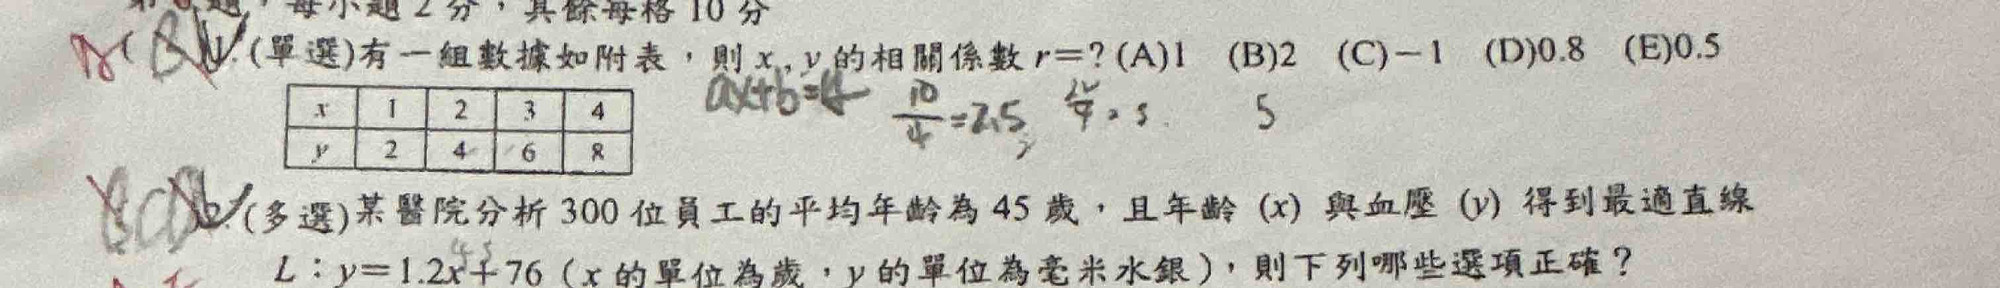 題，每小題2分，其餘每格10分
(B)1.(單選)有一組數據如附表，則x,y的相關係數r=?(A)1 (B)2 (C)-1 (D)0.8 (E)0.5
ax+b=4 10/4=2.5 5
x 1 2 3 4
y 2 4 6 8
(多選)某醫院分析300位員工的平均年齡為45歲，且年齡(x)與血壓(y)得到最適直線
45
L：y=1.2x+76(x的單位為歲，y的單位為毫米水銀)，則下列哪些選項正確？